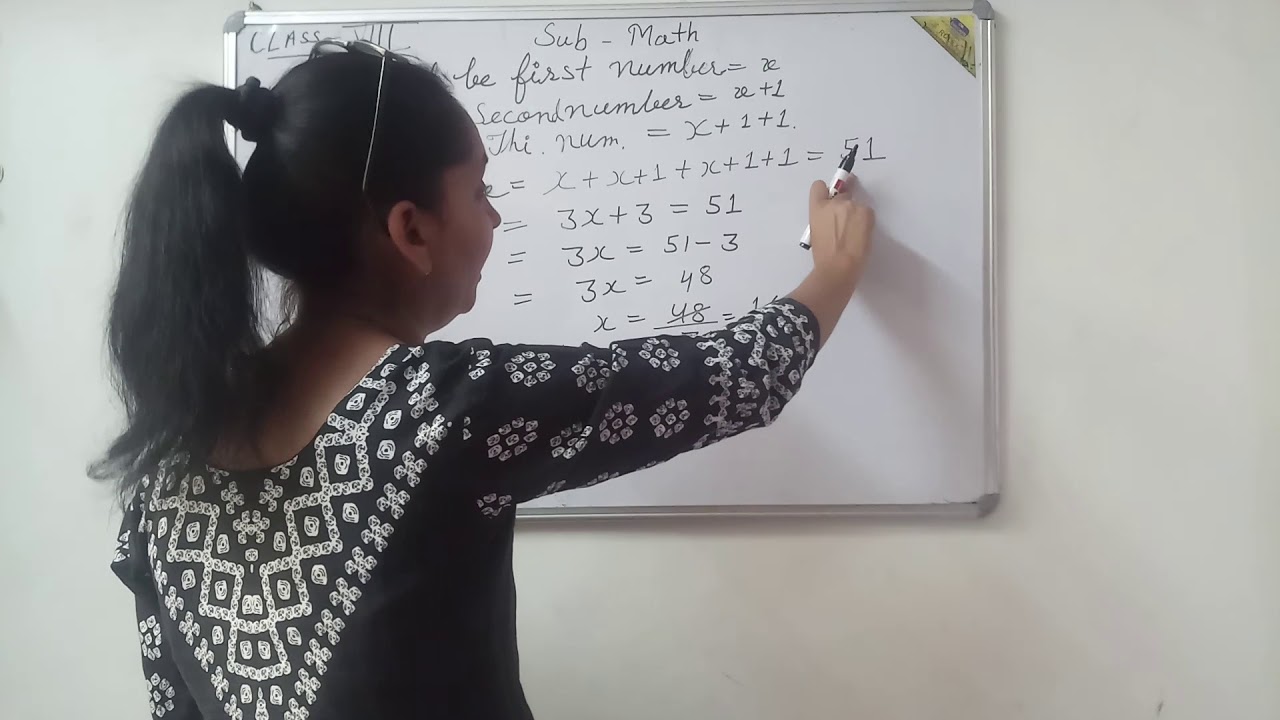 CLASS-VIII
Sub - Math
be first number = x
Second number = x+1
Thi. num. = x+1+1.
= x+x+1+x+1+1 = 51
= 3x+3 = 51
= 3x = 51-3
= 3x = 48
x = 48 =